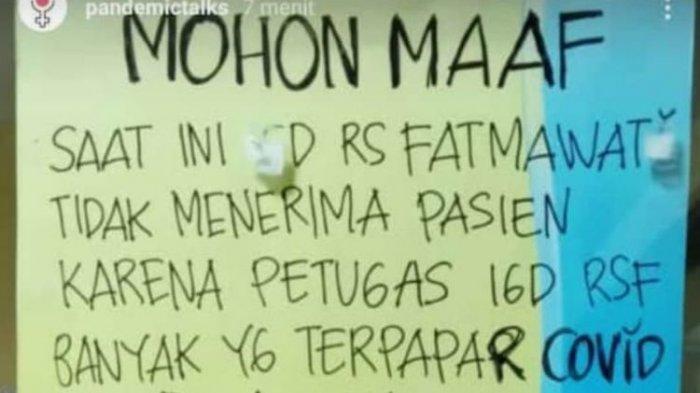 pandemictalks 7 menit
MOHON MAAF
SAAT INI RS FATMAWATI
TIDAK MENERIMA PASIEN
KARENA PETUGAS IGD RSF
BANYAK YG TERPAPAR COVID